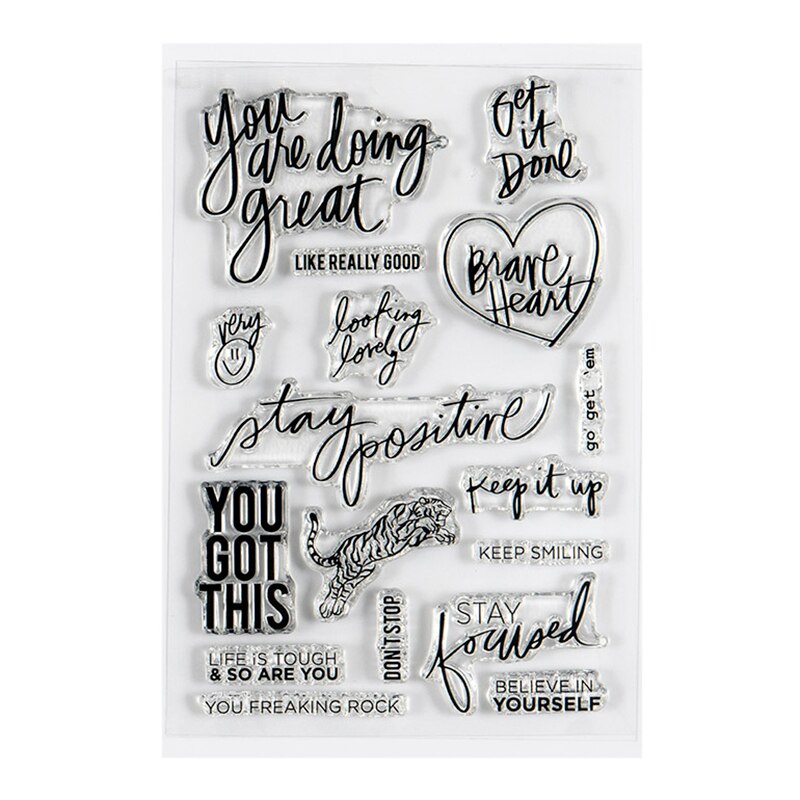 You
are doing
great
Get
it
Done
LIKE REALLY GOOD
Brave
Heart
very
looking
lovely
go get 'em
stay
positive
Keep it up
YOU
GOT
THIS
KEEP SMILING
DON'T STOP
STAY
focused
LIFE iS TOUGH
& SO ARE YOU
BELIEVE IN
YOURSELF
YOU FREAKING ROCK